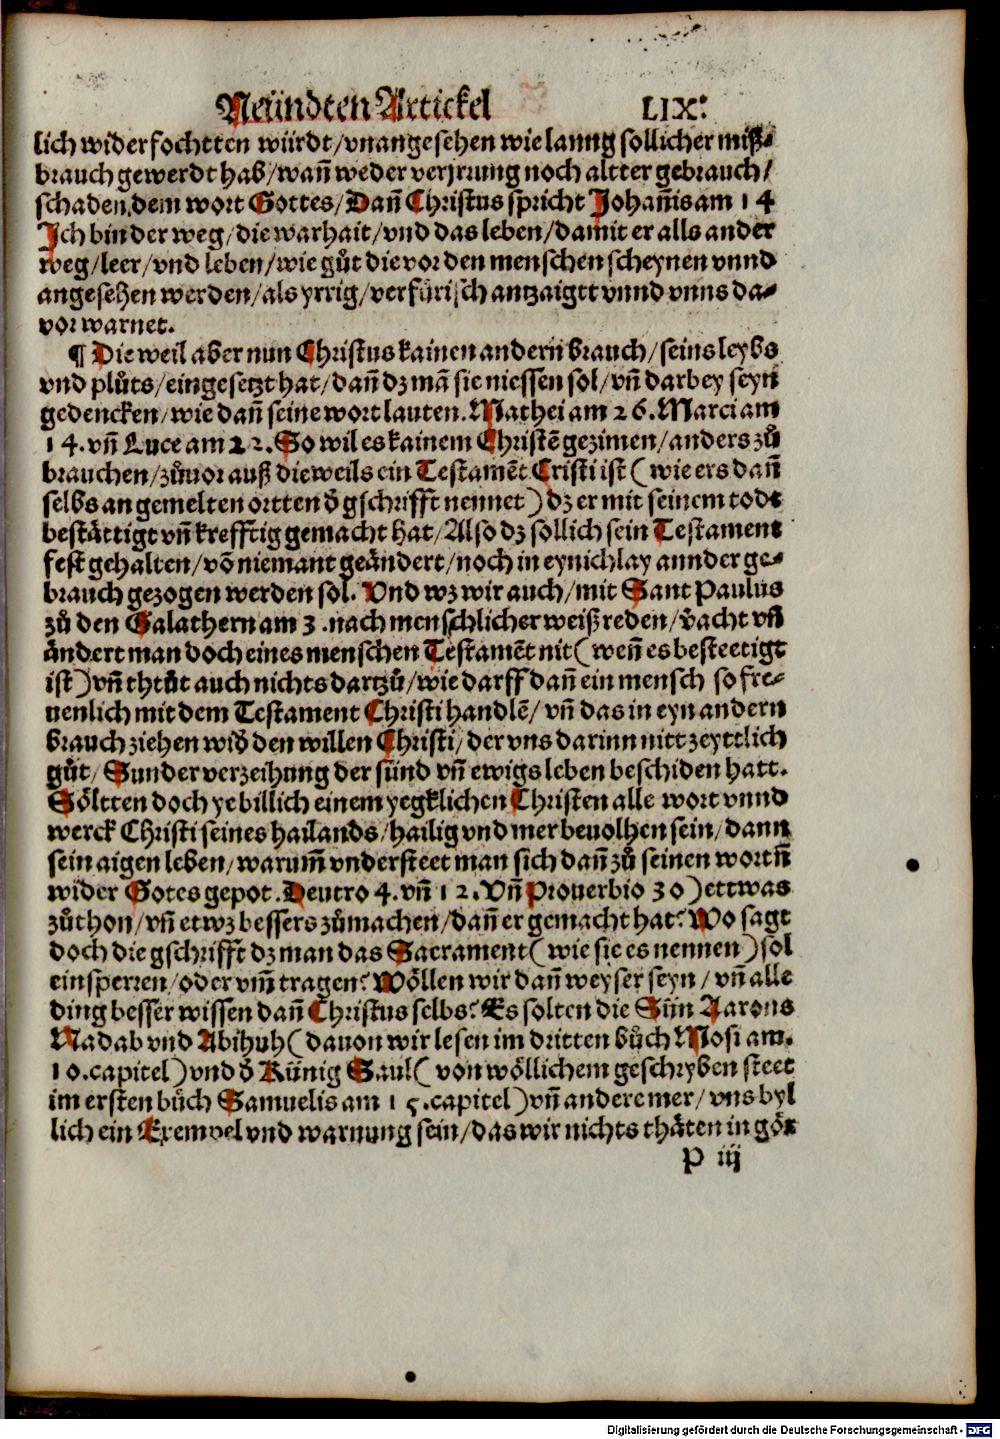 Neündten Artickel LIX:
lich widerfochtten würdt/vnangesehen wie lanng sollicher miß-
brauch gewerdt hab/wañ weder verjrrung noch altter gebrauch/
schaden dem wort Gottes/Dañ Christus spricht Johañis am 14
Jch bin der weg/die warhait/vnd das leben/damit er alls ander
weg/leer/vnd leben/wie gůt die vor den menschen scheynen vnnd
angesehen werden/als yrrig/verfürisch antzaigtt vnnd vnns da-
vor warnet.
¶ Die weil aber nun Christus kainen andern brauch/seins leybs
vnd plůts/eingesetzt hat/dañ dz mã sie niessen sol/vñ darbey seyn
gedencken/wie dañ seine wort lauten. Mathei am 26. Marci am
14. vñ Luce am 22. So wil es kainem Christẽ gezimen/anders zů
brauchen/zůuor auß dieweils ein Testamẽt Cristi ist (wie ers dañ
selbs an gemelten ortten ð gschrifft nennet) dz er mit seinem todt
bestättigt vñ krefftig gemacht hat/Also dz sollich sein Testament
fest gehalten/võ niemant geändert/noch in eynichlay annder ge-
brauch gezogen werden sol. Vnd wz wir auch/mit Sant Paulus
zů den Galathern am 3. nach menschlicher weiß reden/v̈acht vñ
ändert man doch eines menschen Testamẽt nit (weñ es besteetigt
ist) vñ thtůt auch nichts dartzů/wie darff dañ ein mensch so fre-
uenlich mit dem Testament Christi handlẽ/vñ das in eyn andern
brauch ziehen wið den willen Christi/der vns darinn nitt zeyttlich
gůt/Sunder verzeihung der sünd vñ ewigs leben beschiden hatt.
Söltten doch ye billich einem yegklichen Christen alle wort vnnd
werck Christi seines hailands/hailig vnd mer beuolhen sein/dann
sein aigen leben/warum̃ vndersteet man sich dañ zů seinen wortñ
wider Gotes gepot. Deutro 4. vñ 12. Vñ Prouerbio 30) ettwas
zůthon/vñ etwz bessers zůmachen/dañ er gemacht hat? Wo sagt
doch die gschrifft dz man das Sacrament (wie sie es nennen) sol
einsperren/oder vm̃ tragen? Wöllen wir dañ weyser seyn/vñ alle
ding besser wissen dañ Christus selbs? Es solten die Sün Aarons
Nadab vnd Abihuh (dauon wir lesen im dritten bůch Mosi am.
10. capitel) vnd ð Künig Saul (von wöllichem geschryben steet
im ersten bůch Samuelis am 15. capitel) vñ andere mer/vns byl
lich ein Exempel vnd warnung sein/das wir nichts thäten in göt
P iij
Digitalisierung gefördert durch die Deutsche Forschungsgemeinschaft - DFG